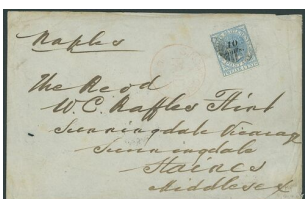 Naples
The Revd
W. C. Raffles Flint
Sunningdale Vicarage
Sunningdale
Staines
Middlesex
10